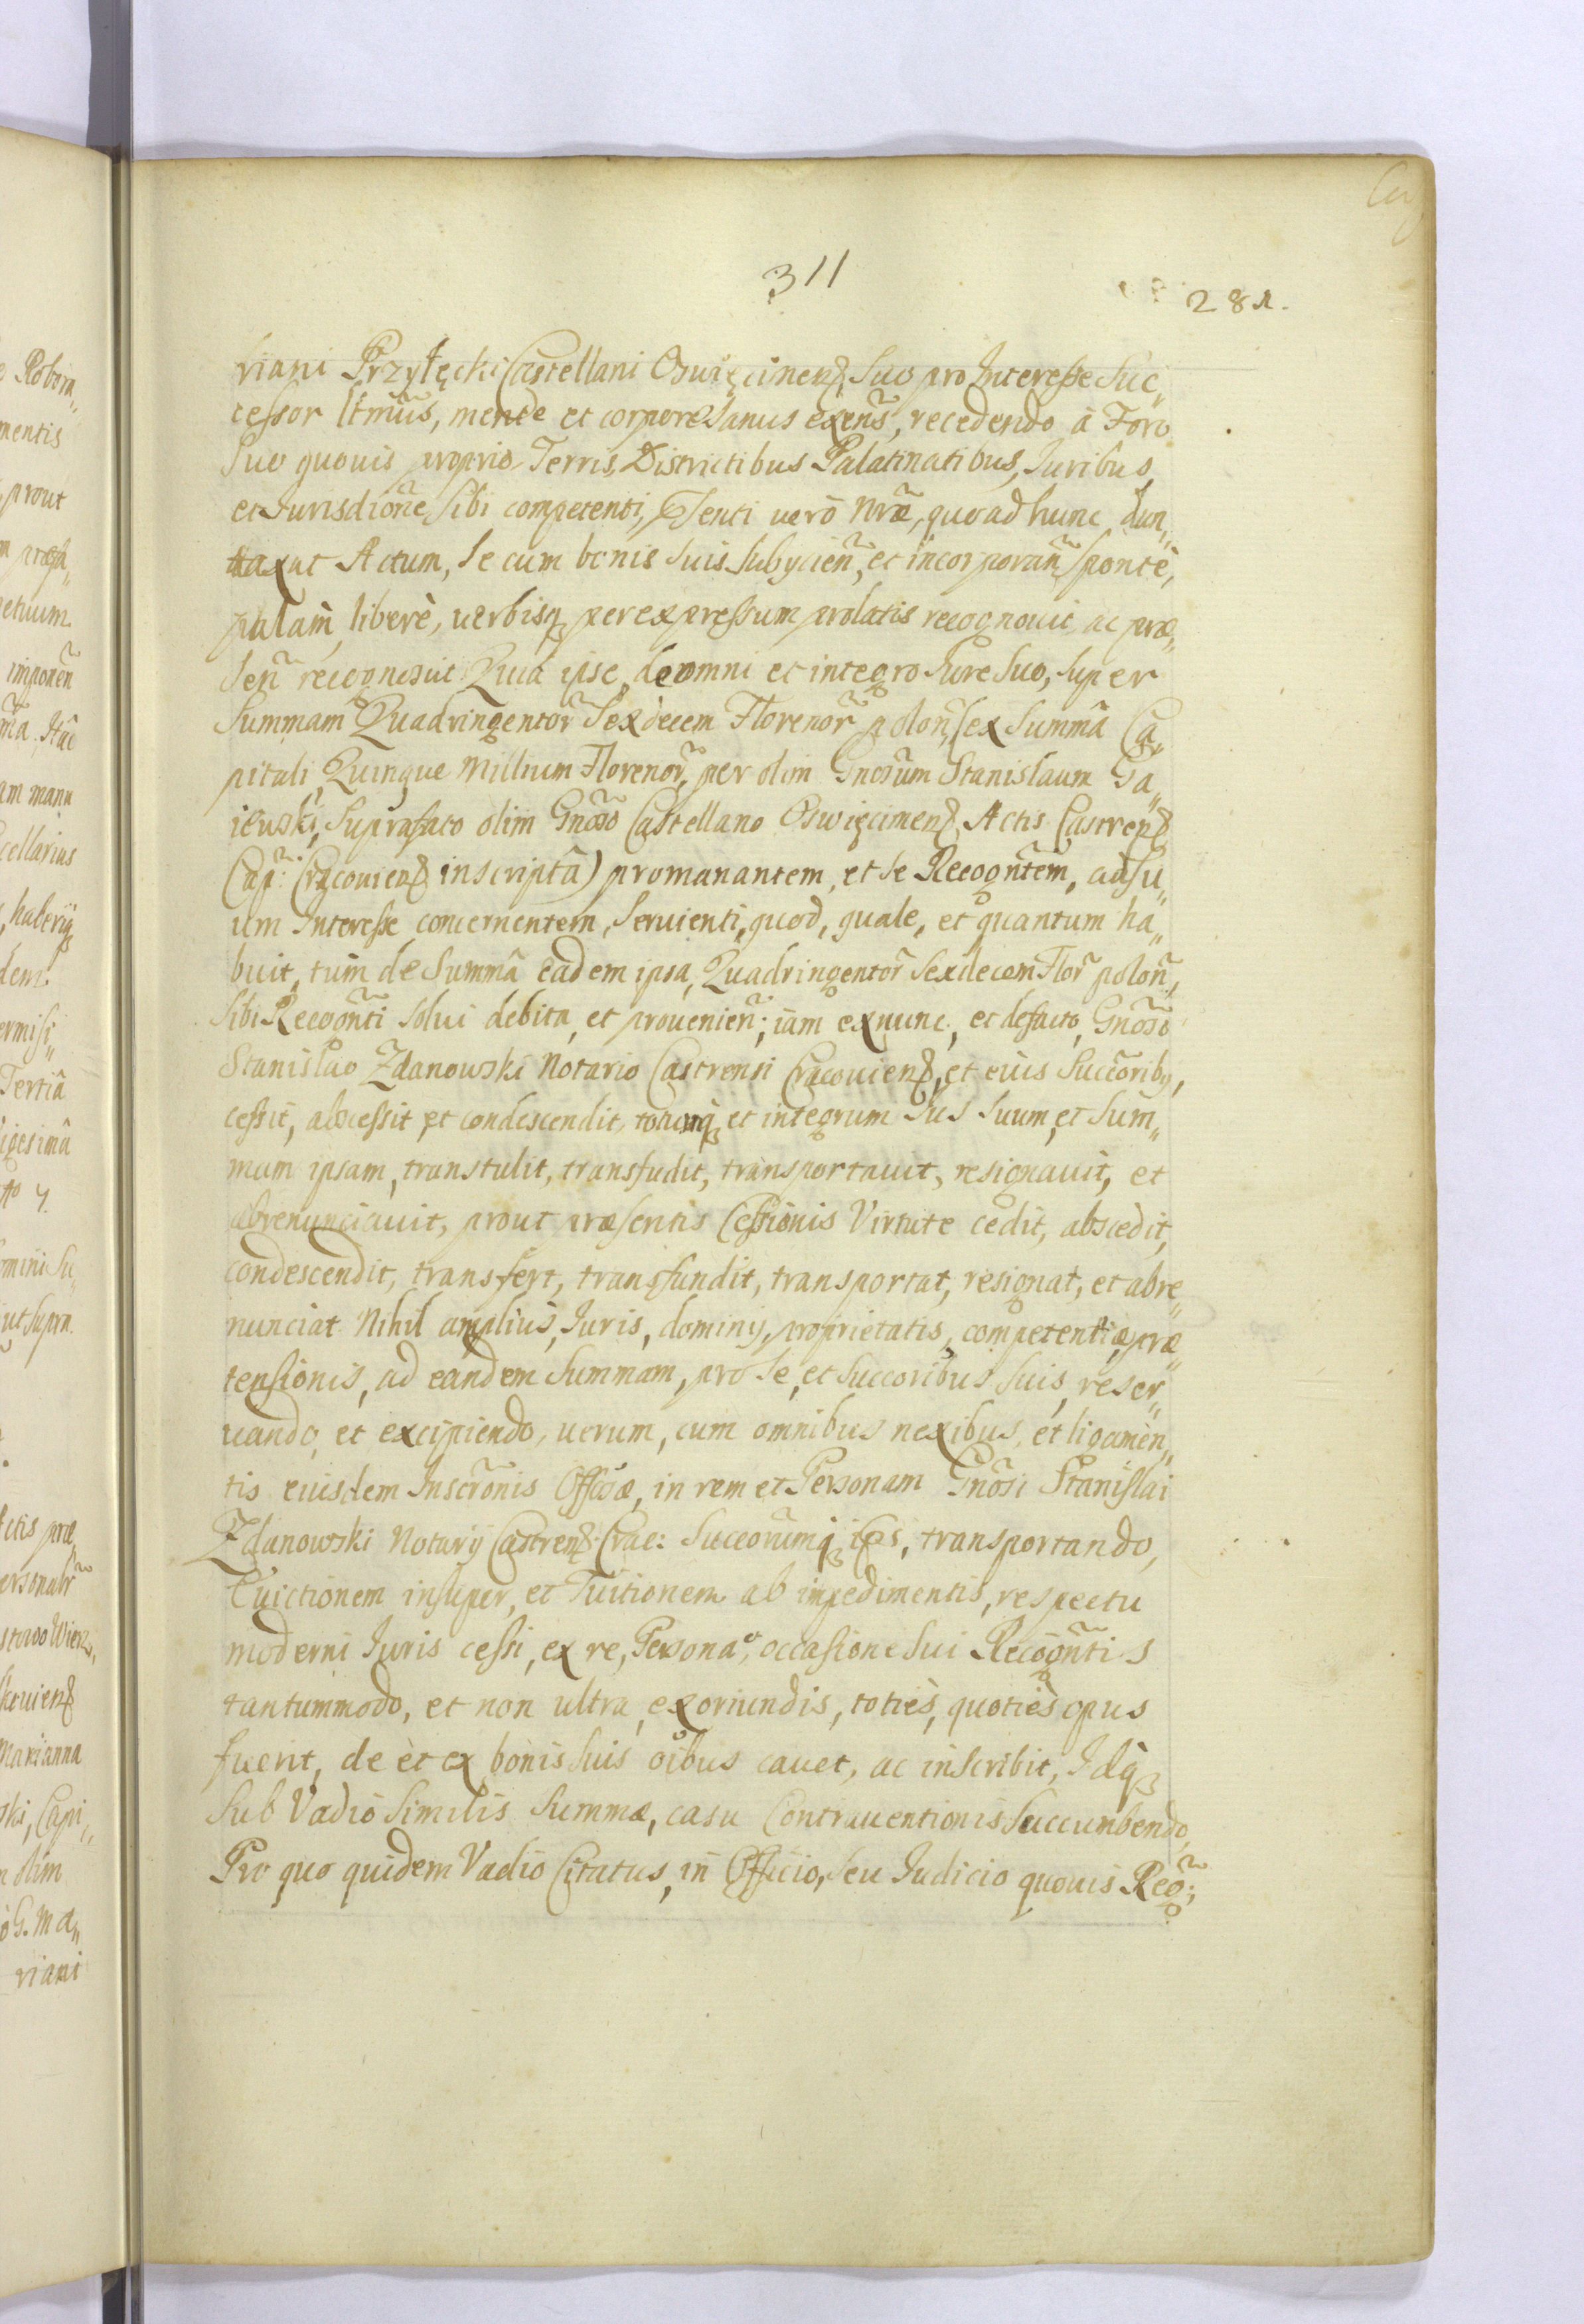 311
281.
riani Przyłęcki Castellani Oswięcimens, Suo pro Interesse Suc„
cessor ltmũs, mente et corpore Sanus exẽns, recedendo à Foro
Suo quovis proprio Terris, Districtibus Palatinatibus, Iuribus,
et Iurisdiõne Sibi competenti, Psenti verò Nr̃æ, quo ad hunc dun„
taxat Actum, Se cum bonis Suis Subyciẽn, et incorporañ Spontè,
palàm, liberè, verbisq per expressum prolatis recognovit, ac præ„
Señ recognoscit Quia ipse, de omni et integro Iure Suo, Super
Summam Quadringentor̃ Sexdecem Florenor̃ poloñ, (ex Summâ Ca„
pitali, Quinque Millium Florenor̃, per olim Gnosũm Stanislaum Ga„
iewski, Suprafato olim Gnõso Castellano Oswięcimens, Actis Castren
Cap: Cracoviens inscriptâ) promanantem, et Se Recogñtem, ad Su„
um Interesse concernentem, Servienti, quod, quale, et quantum ha„
buit, tum de Summâ eadem ipsa, Quadringentor̃ Sexdecem Flor̃ poloñ,
Sibi Recogñti Solvi debita, et provenieñ; iam ex nunc, et de facto, Gnõso
Stanislao Zdanowski Notario Castrensi Cracoviens, et eius Succõriby,
cessit, abscessit et condescendit, totumq et integrum Ius Suum, et Sum„
mam ipsam, transtulit, transfudit, transportavit, resignavit, et
abrenunciavit, prout præsentis Cessionis Virtute cedit, abscedit,
condescendit, transfert, transfundit, transportat, resignat, et abre„
nunciat Nihil amplius, Iuris, dominy, proprietatis, competentiæ, præ„
tensionis, ad eandem Summam, pro Se, et Succoribus Suis, reser„
vando, et excipiendo, verum, cum omnibus nexibus, et ligamèn„
tis eiusdem Inscrõnis Offosæ, in rem et Personam Gnõsi Stanislai
Zdanowski Notarÿ Castrens Crac: Succorumq ips, transportando,
Evictionem insuper, et Tuitionem ab impedimentis, respectu
moderni Iuris cessi, ex re, Persona, occasione Sui Recogñtis
tantummodo, et non ultra, exoriundis, toties, quoties opus
fuerit, de et ex bonis Suis oibus cavet, ac inscribit, Idq
Sub Vadio Similis Summæ, casu Contraventionis Succumbendo,
Pro quo quidem Vadio Citatus, in Officio, Seu Iudicio quovis Reg̃;